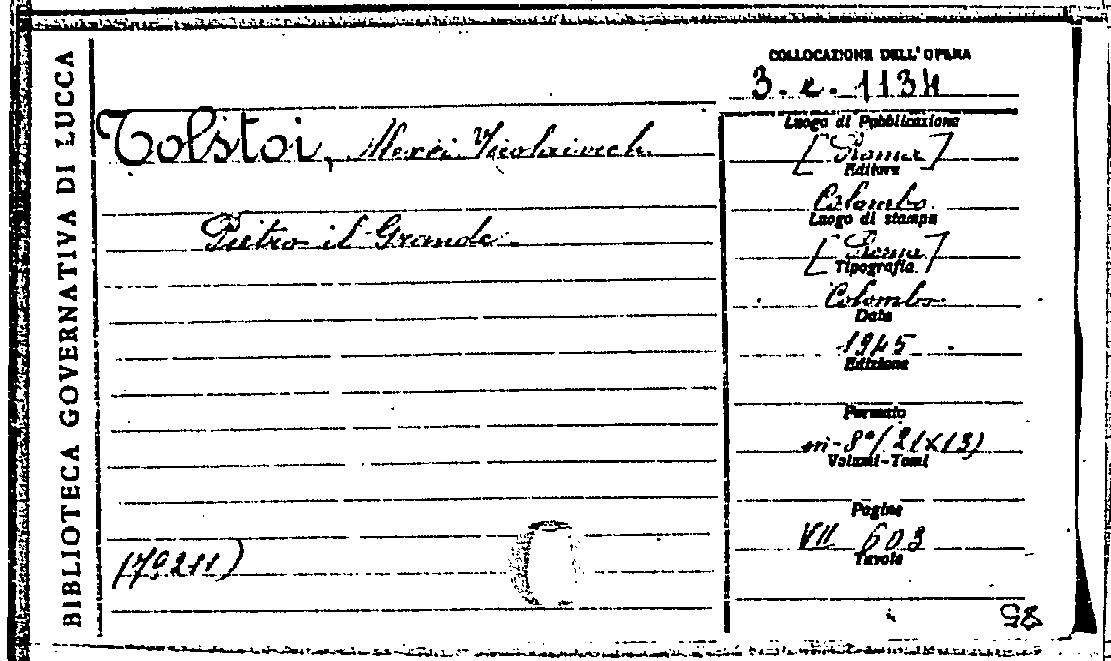 BIBLIOTECA GOVERNATIVA DI LUCCA
COLLOCAZIONE DELL'OPERA
3. e. 1134
Tolstoi, Alessei Nicolaievich
Pietro il Grande.
Luogo di Pubblicazione
[Roma]
Editore
Colombo.
Luogo di stampa
[Roma]
Tipografia.
Colombo.
Data
1945.
Edizione
Formato
in-8° (21x13)
Volumi-Tomi
Pagine
VII 603
Tavole
(179211)